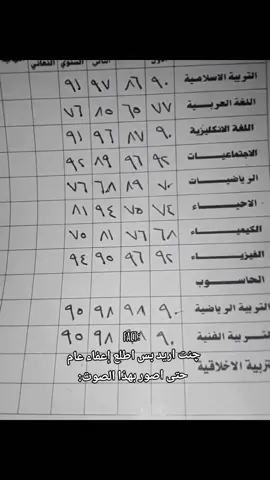 السنوي النهائي
التربية الاسلامية ٩٠ ٨٦ ٩٧ ٩١
اللغة العربية ٧٧ ٦٥ ٨٥ ٧٦
اللغة الانكليزية ٩٠ ٨٧ ٩٦ ٩١
الاجتماعيات ٩٢ ٩٦ ٨٩ ٩٢
الرياضيات ٧٠ ٨٩ ٦٨ ٧٦
الاحياء ٧٤ ٧٥ ٩٤ ٨١
الكيمياء ٦٨ ٧٦ ٨١ ٧٥
الفيزياء ٩٢ ٩٦ ٩٥ ٩٤
الحاسوب
التربية الرياضية ٩٠ ٩٨ ٩٨ ٩٥
التربية الفنية ٩٠ ٩٨ ٩٥
تربية الاخلاقية
جنت اريد بس اطلع إعفاء عام
حتى اصور بهذا الصوت: